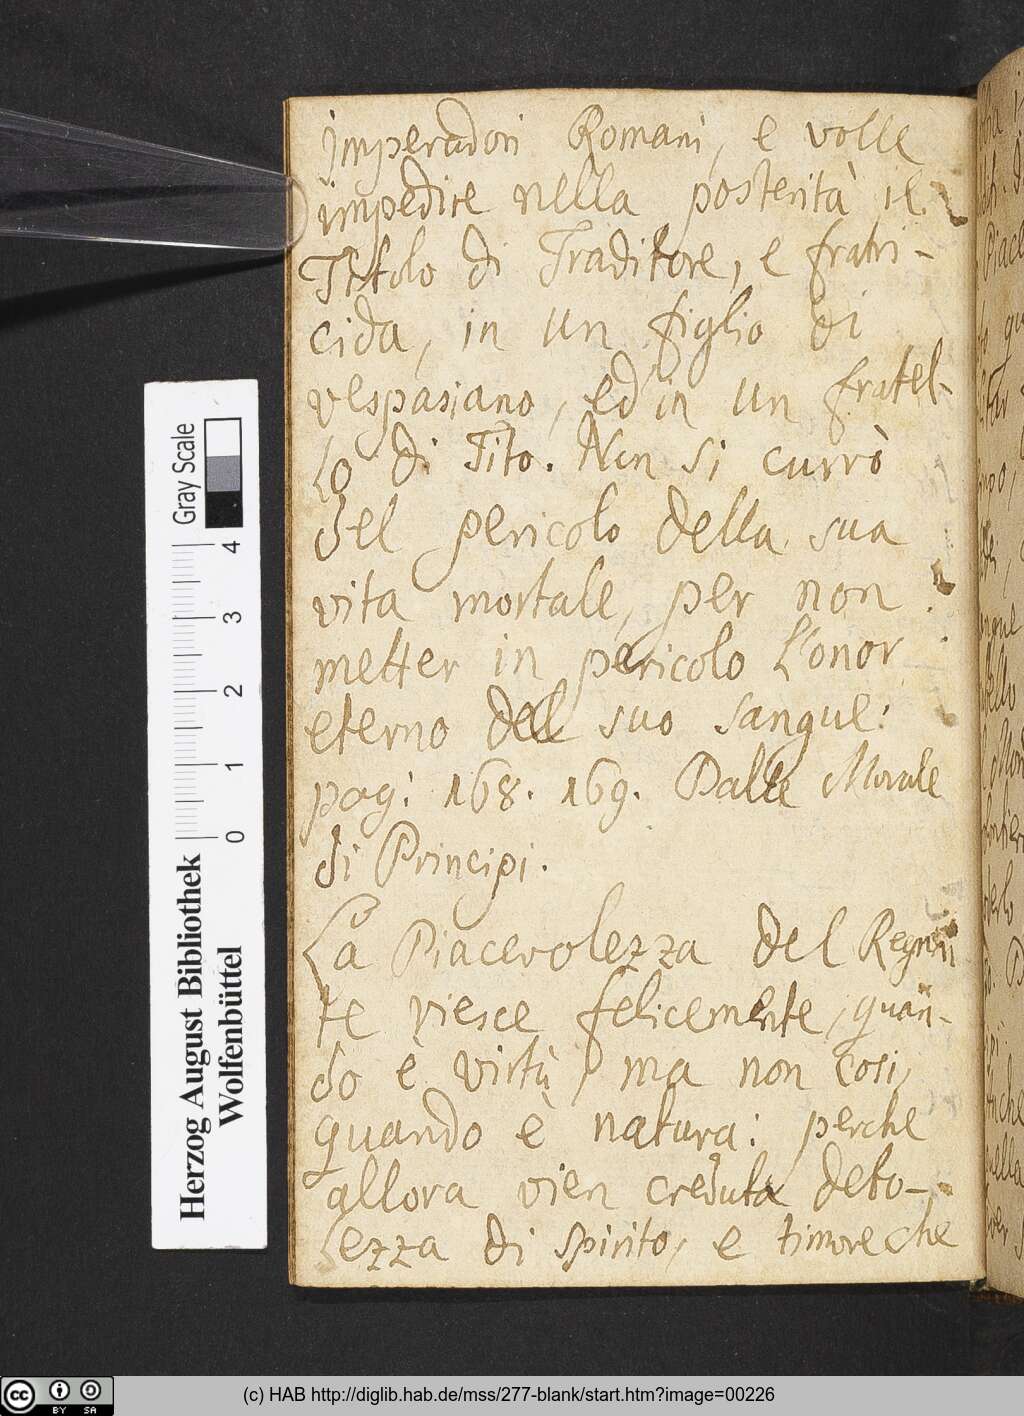 imperadori Romani, e volle
impedire nella posterità il
Titolo di Traditore, e fratri-
cida, in un figlio di
vespasiano, ed in un fratel-
lo di Tito. Non si currò
del pericolo della sua
vita mortale, per non
metter in pericolo l'onor
eterno del suo sangue:
pag: 168. 169. Dalle Morale
di Principi.
La Piacevolezza del Regnan
te riesce felicemente, quan-
do è virtù, ma non cosi,
quando è natura: perche
allora vien creduta debo-
lezza di spirito, e timore che
Gray Scale
4
3
2
1
0
Herzog August Bibliothek
Wolfenbüttel
(c) HAB http://diglib.hab.de/mss/277-blank/start.htm?image=00226
cc BY SA